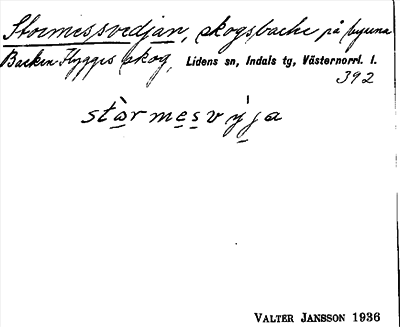 Stormessvedjan, skogsbacke på byarna
Backen Flygges skog, Lidens sn, Indals tg, Västernorrl. l.
392
stàrmesvy̆ja
VALTER JANSSON 1936